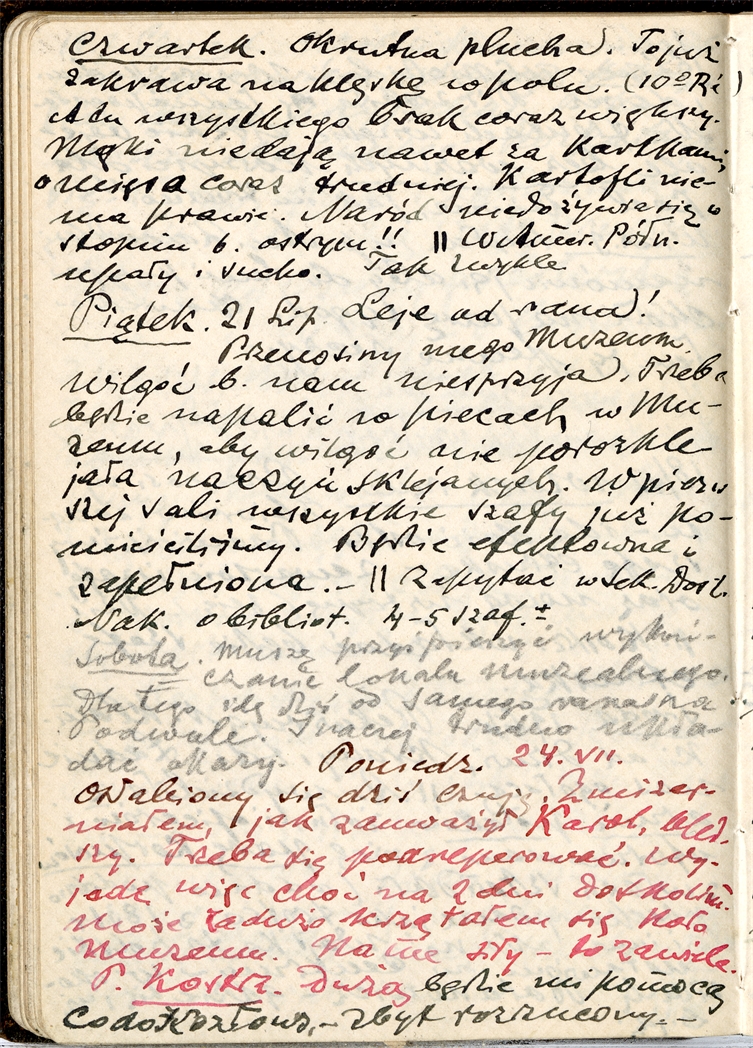 Czwartek. Okrutna plucha. To już
zakrawa na klęskę w polu. (10° Ré
A tu wszystkiego brak coraz większy.
Mąki nie dają nawet za Kartkami,
o mięsa coraz trudniej. Kartofli nie-
ma prawie. Naród niedożywia się w
stopniu b. ostrym!! || W Amer. Półn.
upały i sucho. Tak zwykle
Piątek. 21 Lip. Leje od rana!
Przenosiny mego Muzeum.
Wilgoć b. nam niesprzyja. Trzeba
będzie napalić w piecach w Mu-
zeum, aby wilgoć nie porozkle-
jała naczyń sklejanych. W pierw
szej sali wszystkie szafy już po-
mieściliśmy. Będzie efektowna i
zapełniona. – || Zapytać w Sek. Dosł.
Nak. o bibliot. 4-5 szaf. ±
Sobota. Muszę przyśpieszyć wykoń-
czanie lokalu muzealnego.
Dlatego idę dziś od samego rana na
Podwale. Inaczej trudno ukła-
dać okazy. Poniedz. 24. VII.
Osłabiony się dziś czuję. Zmizer-
niałem, jak zauważył Karol, bled-
szy. Trzeba się podreperować. Wy-
jadę więc choć na 2 dni
Może zadużo krzątałem się koło
Muzeum. Na me siły – to zawiele.
P. Kostrz. Dużą będzie mi pomocą
Co do Kozłows. – zbyt rozrzucony. –